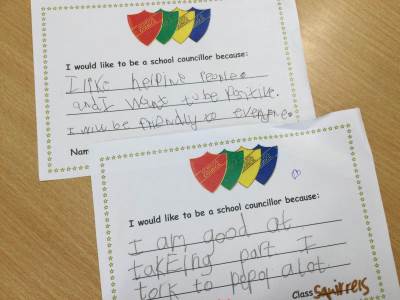 I would like to be a school councillor because:
I like helping People.
and I Want to be Positive.
I will be friendly to everyone.
Nam
I would like to be a school councillor because:
I am good at
takEing part I
tork to pepol alot.
Class Squirrels